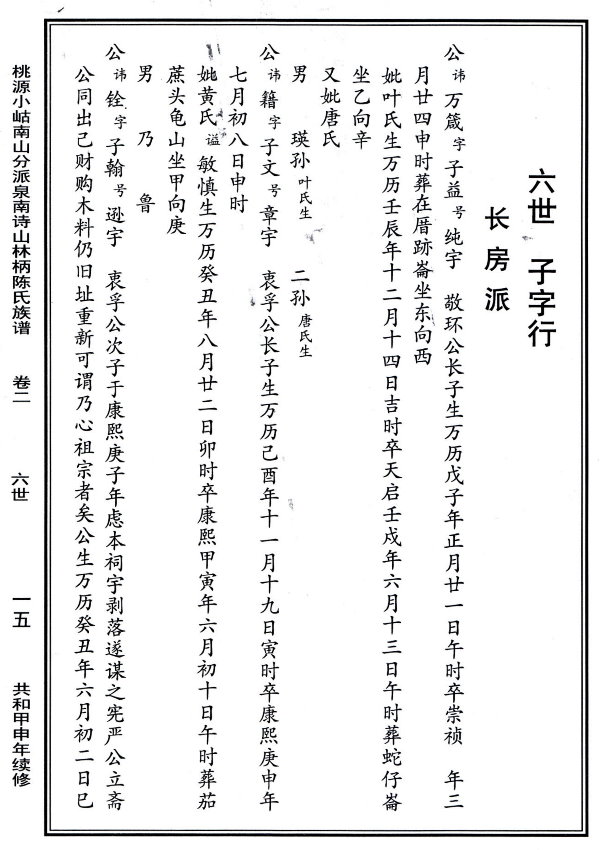 六世 子字行
长房派
公讳万箴字子益号纯宇 敬环公长子生万历戊子年正月廿一日午时卒崇祯 年三
月廿四申时葬在厝跡崙坐东向西
妣叶氏生万历壬辰年十二月十四日吉时卒天启壬戌年六月十三日午时葬蛇仔崙
坐乙向辛
又妣唐氏
男 瑛孙叶氏生 二孙唐氏生
公讳籍字子文号章宇 衷孚公长子生万历己酉年十一月十九日寅时卒康熙庚申年
七月初八日申时
妣黄氏谥敏慎生万历癸丑年八月廿二日卯时卒康熙甲寅年六月初十日午时葬茄
蔗头龟山坐甲向庚
男 乃鲁
公讳铨字子翰号逊宇 衷孚公次子于康熙庚子年虑本祠宇剥落遂谋之宪严公立斋
公同出己财购木料仍旧址重新可谓乃心祖宗者矣公生万历癸丑年六月初二日巳
桃源小岵南山分派泉南诗山林柄陈氏族谱 卷二 六世 一五 共和甲申年续修